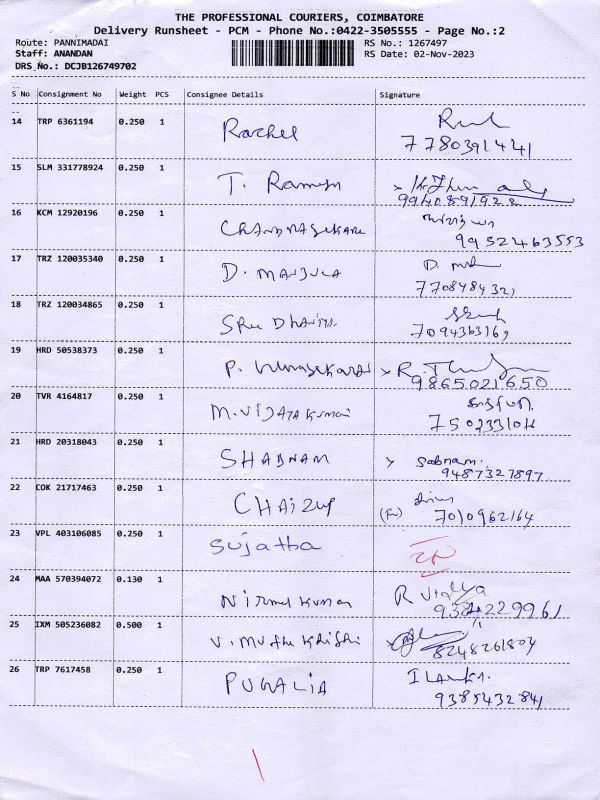 THE PROFESSIONAL COURIERS, COIMBATORE
Delivery Runsheet - PCM - Phone No.:0422-3505555 - Page No.:2
Route: PANNIMADAI
RS No.: 1267497
Staff: ANANDAN
RS Date: 02-Nov-2023
DRS No.: DCJB126749702
S No Consignment No Weight PCS Consignee Details Signature
14 TRP 6361194 0.250 1 Rachel
7780391441
15 SLM 331778924 0.250 1 T. Ramesh
9940891922
16 KCM 12920196 0.250 1
9952463553
17 TRZ 120035340 0.250 1 D. MANJULA
18 TRZ 120034865 0.250 1
7094363169
19 HRD 50538373 0.250 1 P.
9865021650
20 TVR 4164817 0.250 1 M. VIJAYAKUMAR
21 HRD 20318043 0.250 1 SHABNAM Sabnam.
9487327897
22 COK 21717463 0.250 1
7010962164
23 VPL 403106085 0.250 1 Sujatha
24 MAA 570394072 0.130 1 Nirmal Kumar R Vidya
25 IXM 505236082 0.500 1
8248261804
26 TRP 7617458 0.250 1 PUGALIA
9385432841